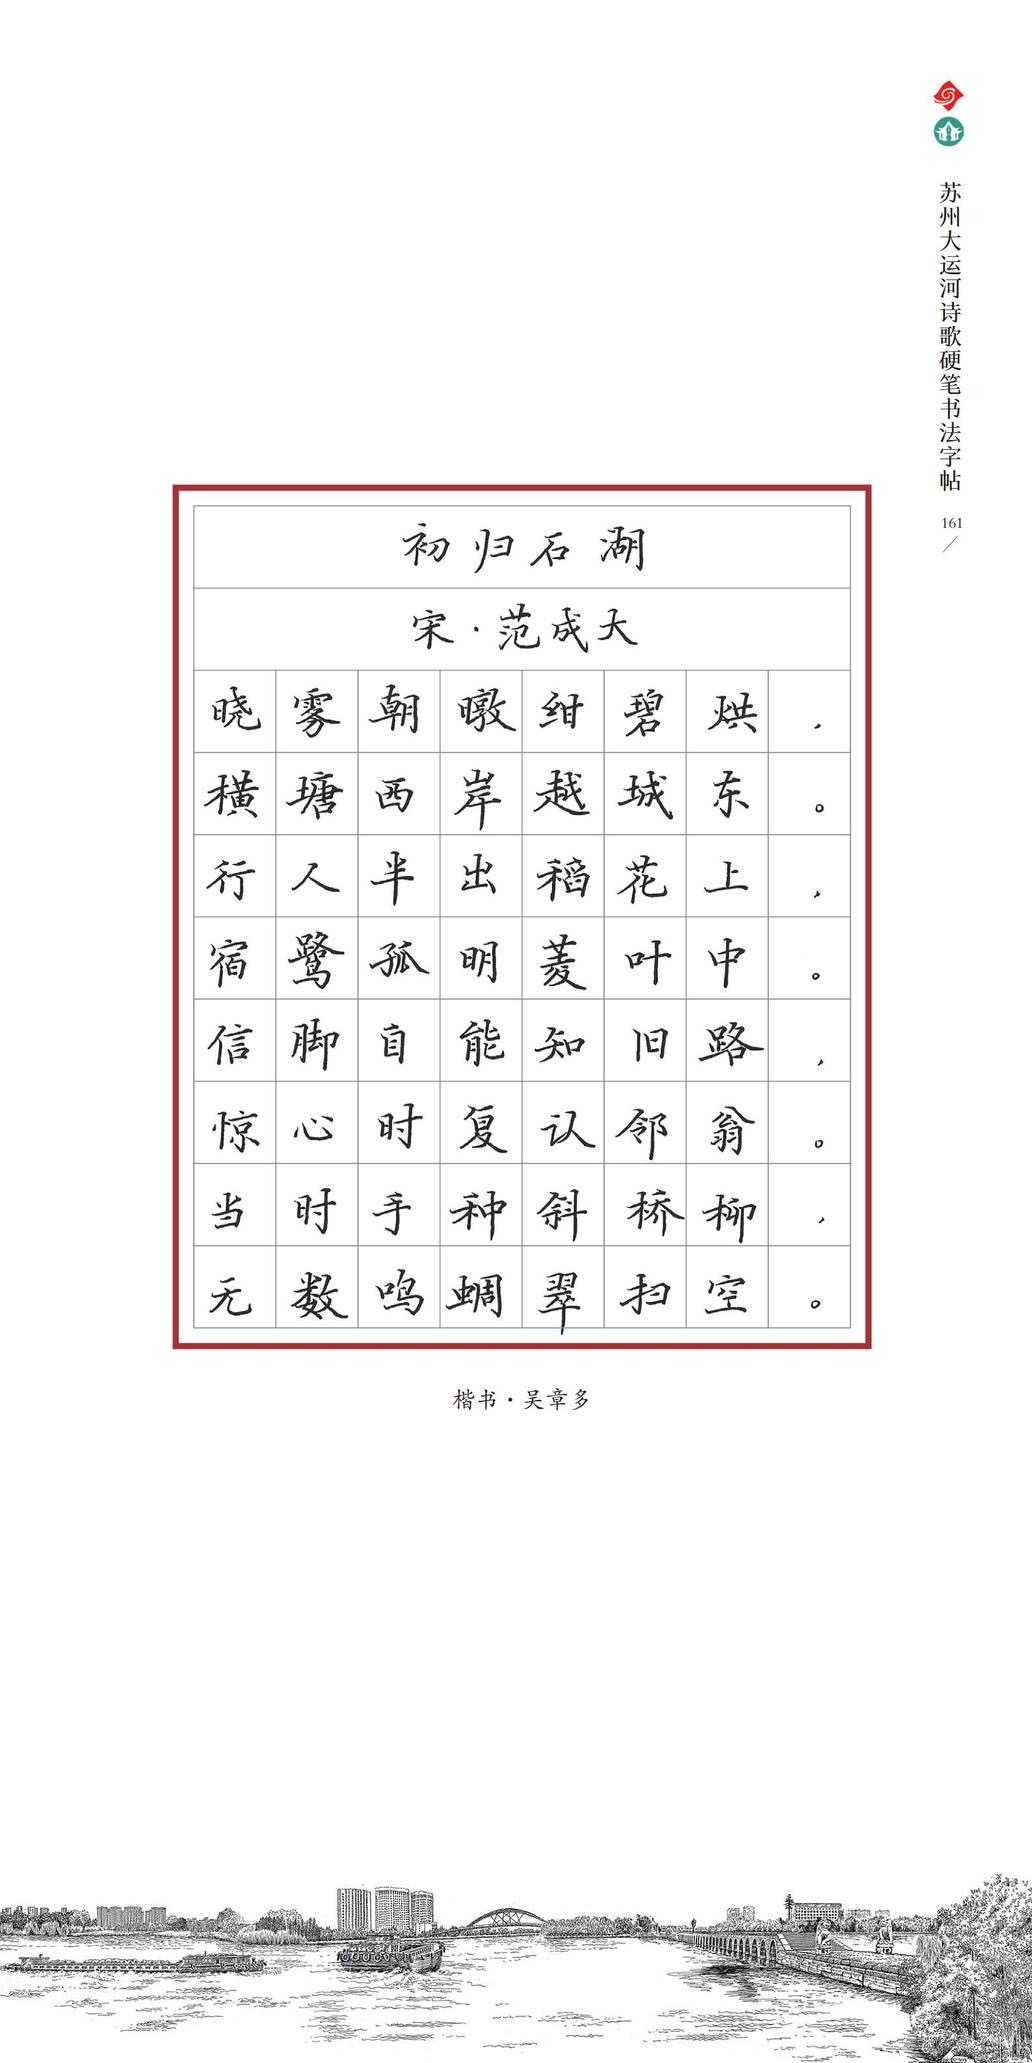 苏州大运河诗歌硬笔书法字帖
161
初归石湖
宋·范成大
晓雾朝暾绀碧烘，
横塘西岸越城东。
行人半出稻花上，
宿鹭孤明菱叶中。
信脚自能知旧路，
惊心时复认邻翁。
当时手种斜桥柳，
无数鸣蜩翠扫空。
楷书·吴章多